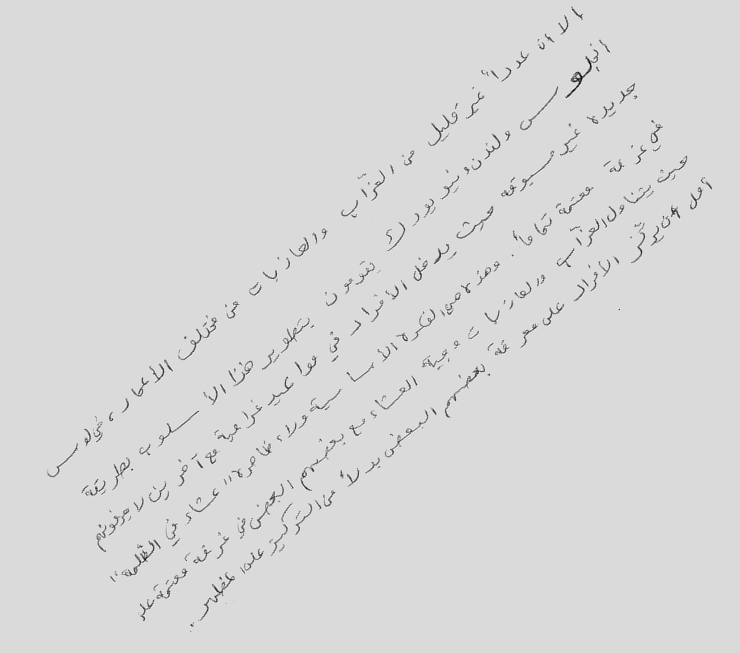 الا ان عدداً غير قليل من العزّاب والعازبات من مختلف الأعمار، في لوس
انجلوس ولندن ونيويورك يقومون بتطوير هذا الأسلوب بطريقة
جديدة غير مسبوقة حيث يدخل الأفراد في مواعيد غرامية مع آخرين لا يعرفونهم
في غرفة معتمة تماماً. وهذه هي الفكرة الأساسية وراء ظاهرة "عشاء في الظلمة"
حيث يتناول العزّاب والعازبات وجبة العشاء مع بعضهم البعض في غرفة معتمة على
أمل ان يركّز الأفراد على معرفة بعضهم البعض بدلاً من التركيز على المظهر.